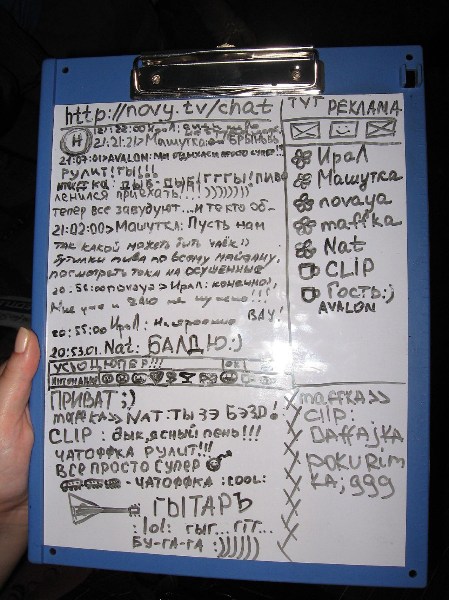 http://novy.tv/chat
ТУТ РЕКЛАМА
21:22:00
21:21:21> Машутка: БРЫНЬЬ
21:07:01>AVALON: МЫ ОТДЫХАЕМ ПРОСТО СУПЕР!!
РУЛИТ!ГЫ!!!
ДЫБ-ДЫБ! ГГГЫ! ПИВО
ЛЕНИЛСЯ ПРИЕХАТЬ...))))))))
теперь все завудуют...и те кто об-
21:02:00> Машутка: Пусть нам
так какой может быть чаёк))
Бутылки пива по всему майдану,
посмотреть тока на осушенные
20:58:00 novaya> Ирал: конечно!,
Мне уже и даю не нужно!!!
ВАУ!
20:55:00 Ирал: Настроение
20:53:01. Nat: БАЛДЮ:)
Ирал
Машутка
novaya
maffka
Nat
CLIP
Гость:)
AVALON
УСЬО ЦЮПЕР!!!
ПРИВАТ ;)
maffka>> NAT: ТЫ ЗЭ БЭЗД!
CLIP : ДЫК, ЯСНЫЙ ПЕНЬ!!!
ЧАТОФФКА РУЛИТ!!!
ВСЕ ПРОСТО СУПЕР
- ЧАТОФФКА :COOL:
ГЫТАРЪ
:lol: ГЫГ...ГГГ...
БУ-ГА-ГА :))))))
maffka>>
Clip:
DAffAjKA
POKURIM
KA; ggg